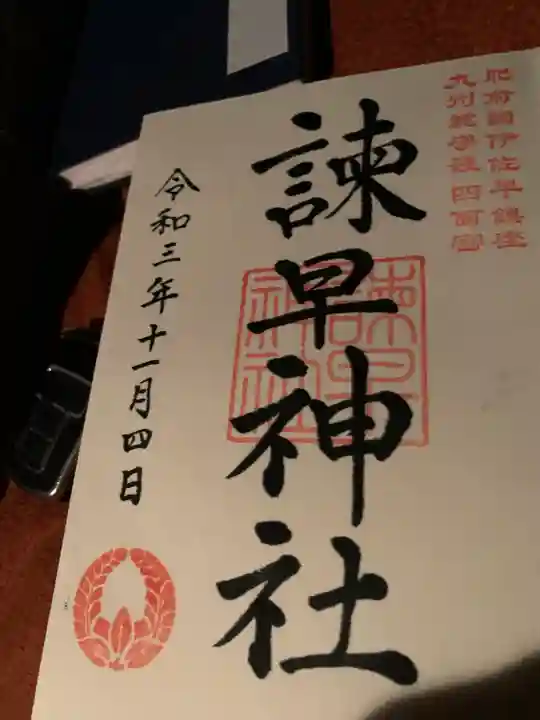 肥前國伊佐早鎮座
九州総守護四面宮
諫早神社
諫早
神社
令和三年十一月四日